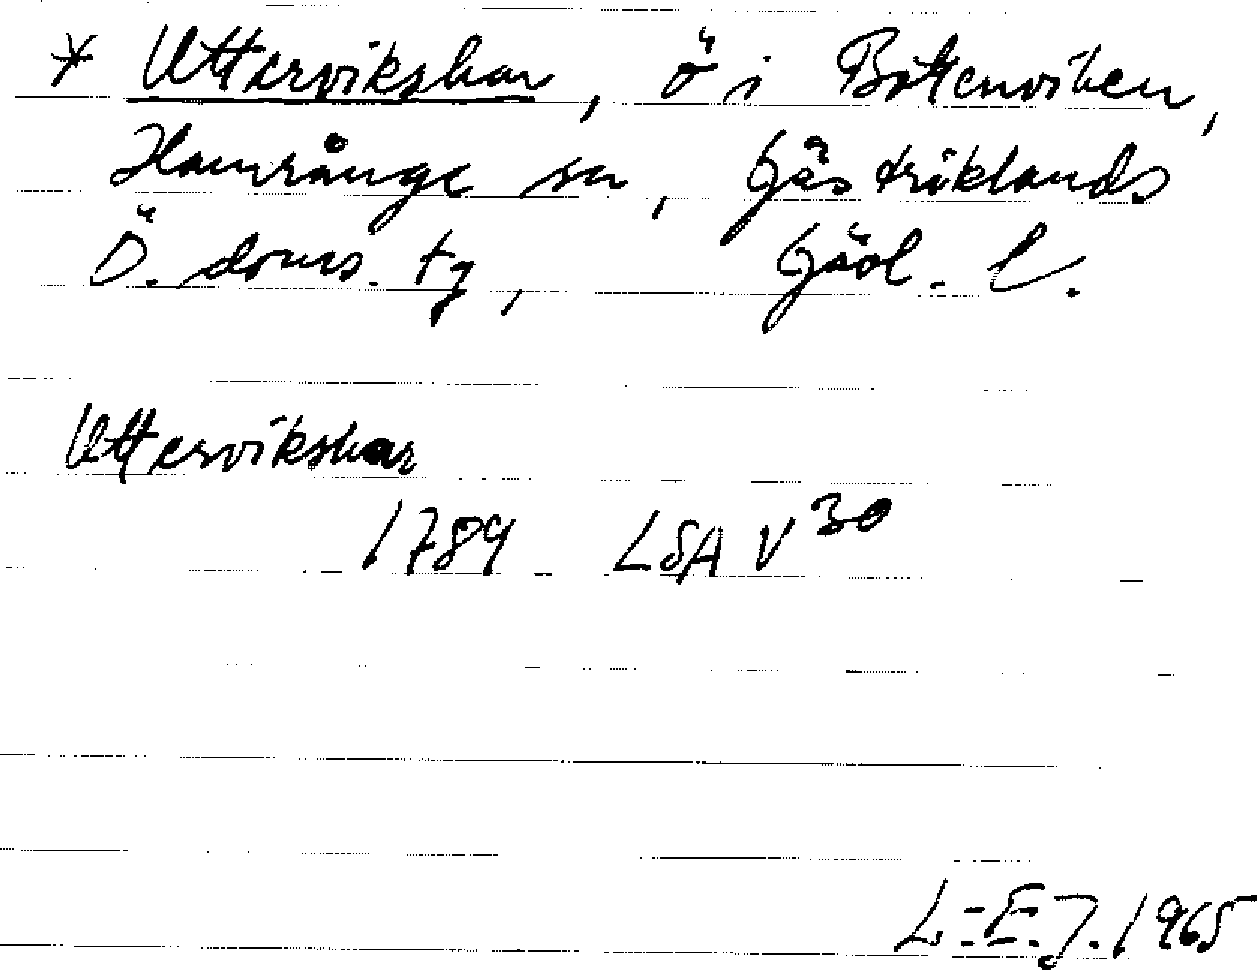 * Uttervikshar, ö i Bottenviken,
Hamrånge sn, Gästriklands
Ö. doms. tg, Gävl. l.
Uttervikshar
1789 LSA V 30
L-E.J. 1965